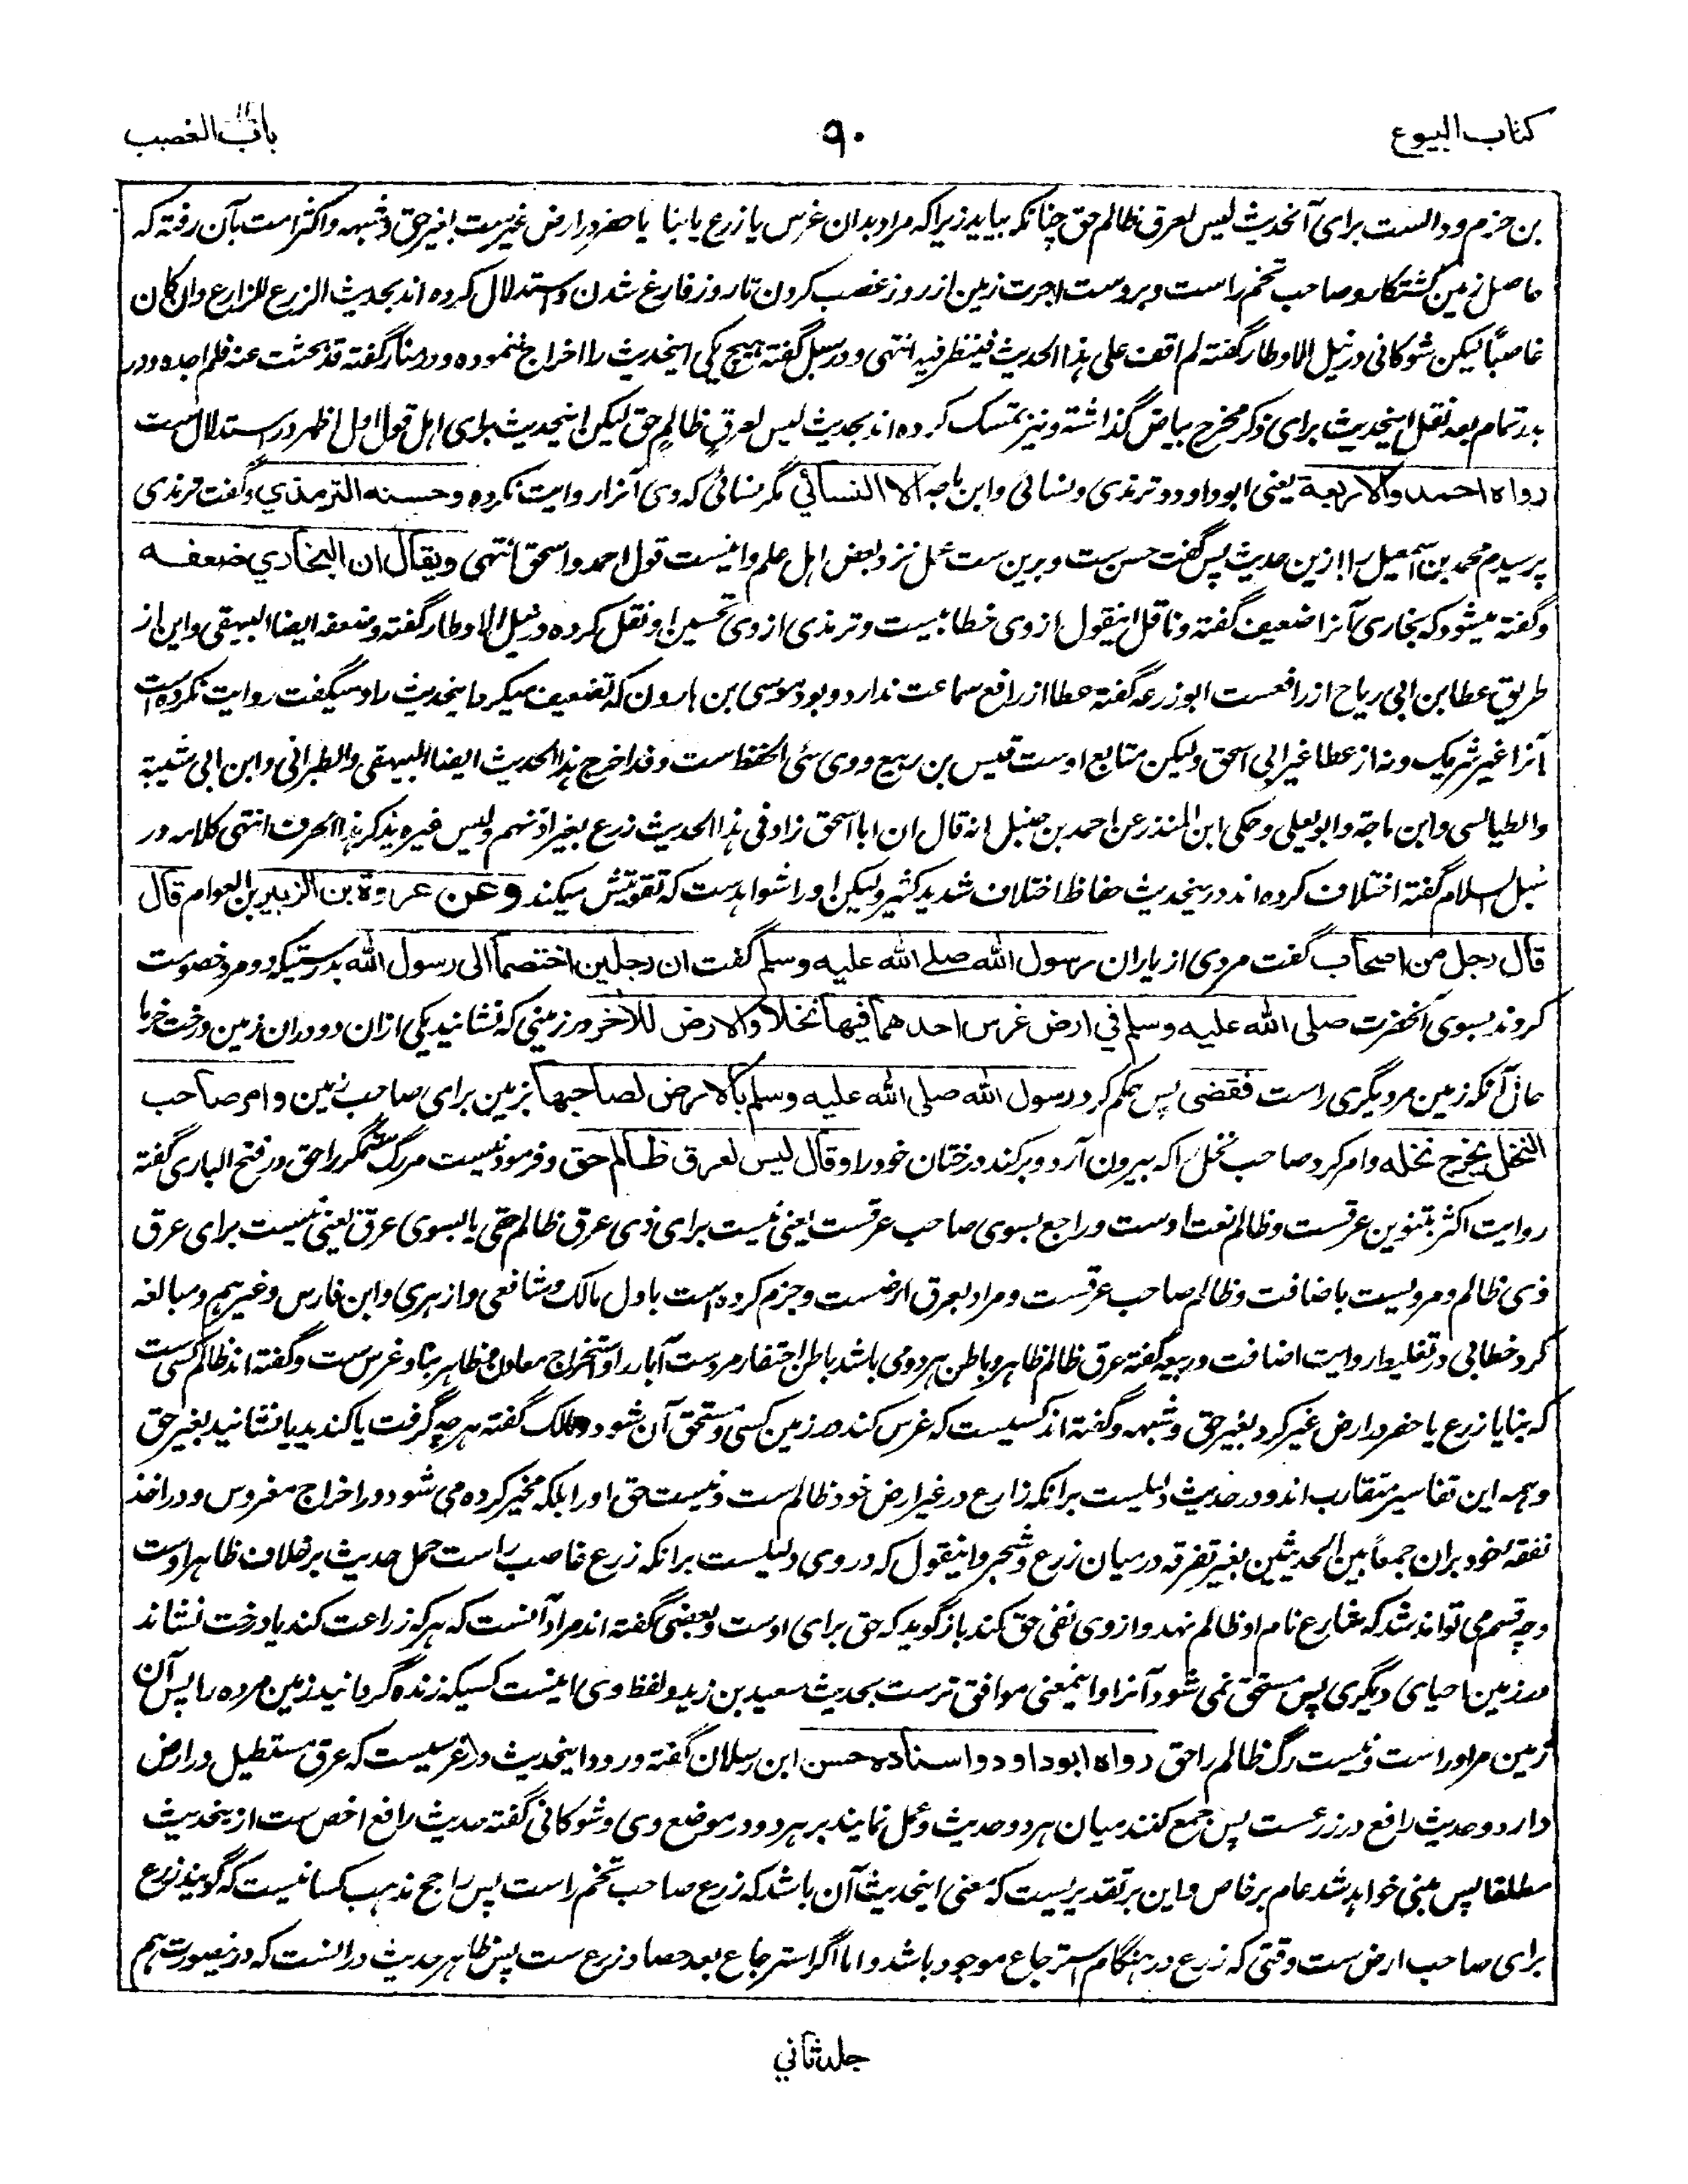 کتاب البیوع
۹۰
باب الغصب
بن حزم و دالست برای آن حدیث لیس لعرق ظالم حق چنانکه بیاید زیرا که مراد بدان غرس یا زرع یا بنا یا حفر در ارض غیرست بغیر حق و شبهه و اکثر امت بآن رفته که
حاصل زمین کشتکار و صاحب تخم راست و بروست اجرت زمین از روز غصب کردن تا روز فارغ شدن و استدلال کرده اند بحدیث الزرع للزارع وان کان
غاصباً لیکن شوکانی در نیل الاوطار گفته لم اقف علی هذا الحدیث فینظر فیه انتهی و در سبل گفته هیچ یکی اینحدیث را اخراج ننموده و در منار گفته قد بحثت عنه فلم اجده و در
بدر تمام بعد نقل اینحدیث برای ذکر مخرج بیاض گذاشته و نیز تمسک کرده اند بحدیث لیس لعرق ظالم حق لیکن اینحدیث برای اهل قول اول اظهر در استدلال ست
رواه احمد والاربعة یعنی ابوداود و ترمذی و نسائی و ابن ماجه الا النسائي مگر نسائی که وی آنرا روایت نکرده وحسنه الترمذي و گفت ترمذی
پرسیدم محمد بن اسمعیل را ازین حدیث پس گفت حسن ست و برین ست عمل نزد بعض اهل علم و اینست قول احمد و اسحق انتهی ویقال ان البخاري ضعفه
و گفته میشود که بخاری آنرا ضعیف گفته و ناقل اینقول از وی خطابیست و ترمذی از وی تحسین او نقل کرده و در نیل الاوطار گفته وضعفه ایضا البیهقی و این از
طریق عطا بن ابی رباح از رافعست ابوزرعه گفته عطا از رافع سماعت ندارد و بود موسی بن هارون که تضعیف میکرد اینحدیث را و میگفت روایت نکرده است
آنرا غیر شریک و نه از عطا غیر ابی اسحق ولیکن متابع اوست قیس بن ربیع و وی سئ الحفظ ست وقد اخرج هذا الحدیث ایضا البیهقی والطبرانی وابن ابی شیبة
والطیالسی وابن ماجة وابو یعلی وحکی ابن المنذر عن احمد بن حنبل انه قال ان ابا اسحق زاد فی هذا الحدیث زرع بغیر اذنهم ولیس غیره یذکر هذا الحرف انتهی کلامه در
سبل السلام گفته اختلاف کرده اند در ینحدیث حفاظ اختلاف شدید کثیر ولیکن او را شواهدست که تقویتش میکند وعن عروة بن الزبیر بن العوام قال
قال رجل من اصحاب گفت مردی از یاران رسول الله صلے الله علیه وسلم گفت ان رجلین اختصما الی رسول الله بدرستیکه دو مرد خصومت
کردند بسوی آنحضرت صلی الله علیه وسلم في ارض غرس احدهما فیها نخلا والارض للآخر در زمینی که نشانید یکی ازان دو دران زمین درخت خرما
حال آنکه زمین مر دیگری راست فقضی پس حکم کرد رسول الله صلی الله علیه وسلم بالارض لصاحبها بزمین برای صاحب زمین وامر صاحب
النخل یخرج نخله و امر کرد صاحب نخل را که بیرون آرد و برکند درختان خود را وقال لیس لعرق ظالم حق و فرمود نیست مر رگ ستمگر را حق در فتح الباری گفته
روایت اکثر بتنوین عرقست و ظالم نعت اوست و راجع بسوی صاحب عرقست یعنی نیست برای ذی عرق ظالم حقی یا بسوی عرق یعنی نیست برای عرق
ذی ظالم و مرویست باضافت و ظالم صاحب عرقست و مراد بعرق ارضست و جزم کرده است باول مالک و شافعی و ازهری و ابن فارس و غیرهم و مبالغه
کرد خطابی در تغلیط روایت اضافت و ربیعه گفته عرق ظالم ظاهر و باطن هر دو می باشد باطن احتفار مردست آبار را و استخراج معادن و ظاهر بنا و غرس ست و گفته اند ظالم کسی ست
که بنا یا زرع یا حفر در ارض غیر کرد بغیر حق و شبهه و گفته اند کسیست که غرس کند در زمین کسی و مستحق آن شود و مالک گفته هر چه گرفت یا کندید یا نشانید بغیر حق
و همه این تفاسیر متقارب اند و در حدیث دلیلیست برانکه زارع در غیر ارض خود ظالم ست و نیست حق او را بلکه مخیر کرده می شود در اخراج مغروس و در اخذ
نفقهٔ خود بران جمعاً بین الحدیثین بغیر تفرقه درمیان زرع و شجر و اینقول که در وی دلیلست برانکه زرع غاصب راست حمل حدیث بر خلاف ظاهر اوست
و چه قسم می تواند شد که شارع نام او ظالم نهد و از وی نفی حق کند باز گوید که حق برای اوست و بعضی گفته اند مراد آنست که هر که زراعت کند یا درخت نشاند
در زمین احیای دیگری پس مستحق نمی شود آنرا و اینمعنی موافق ترست بحدیث سعید بن زید و لفظ وی اینست کسیکه زنده گردانید زمین مرده را پس آن
زمین مر او راست و نیست رگ ظالم را حق رواه ابوداود واسناده حسن ابن رسلان گفته ورود اینحدیث در غرسیست که عرق مستطیل در ارض
دارد و حدیث رافع در زرعست پس جمع کنند میان هر دو حدیث و عمل نمایند بر هر دو در موضع وی و شوکانی گفته حدیث رافع اخص ست از ینحدیث
مطلقا پس مبنی خواهد شد عام بر خاص و این بر تقدیریست که معنی اینحدیث آن باشد که زرع صاحب تخم راست پس راجح مذهب کسانیست که گویند زرع
برای صاحب ارض ست وقتی که زرع در هنگام استرجاع موجود باشد و اما اگر استرجاع بعد حصاد زرع ست پس ظاهر حدیث دالست که درینصورت هم
جلد ثاني